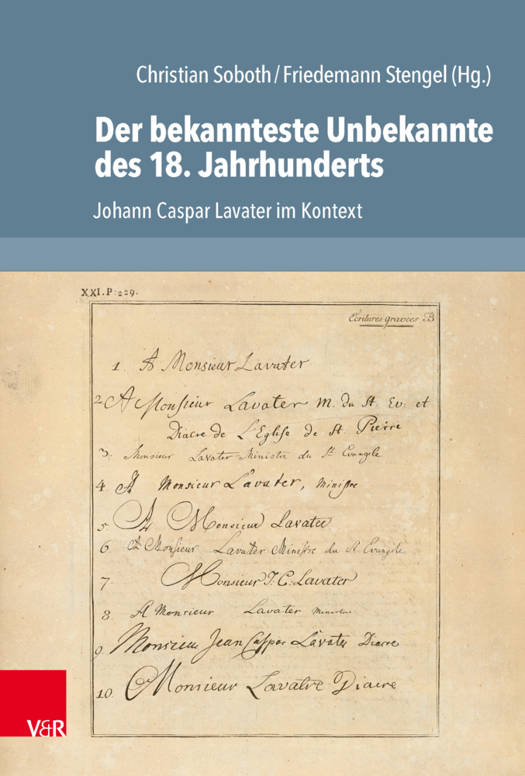 Christian Soboth / Friedemann Stengel (Hg.)
Der bekannteste Unbekannte
des 18. Jahrhunderts
Johann Caspar Lavater im Kontext
XXI. P. 229.
Ecritures gravées B.
1. A Monsieur Lavater
2. A Monsieur Lavater M. du St. Ev. et
Diacre de L'Eglise de St. Pierre
3. Monsieur Lavater Ministre du St Evangile
4. A Monsieur Lavater, Ministre
5. A Monsieur Lavater
6. A Monsieur Lavater Ministre du St. Evangile
7. Monsieur J. C. Lavater
8. A Monsieur Lavater
9. Monsieur Jean Caspar Lavater Diacre
10. Monsieur Lavatre Diacre
V&R